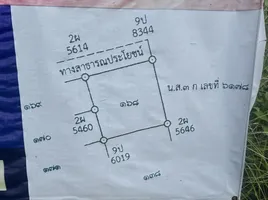 9ป
8344
2ผ
5614
ทางสาธารณประโยชน์
น.ส.๓ ก เลขที่ ๖๑๗๘
๑๖๙
๑๖๘
๑๗๐
2ผ
5460
2ผ
5646
9ป
6019
๑๓๘